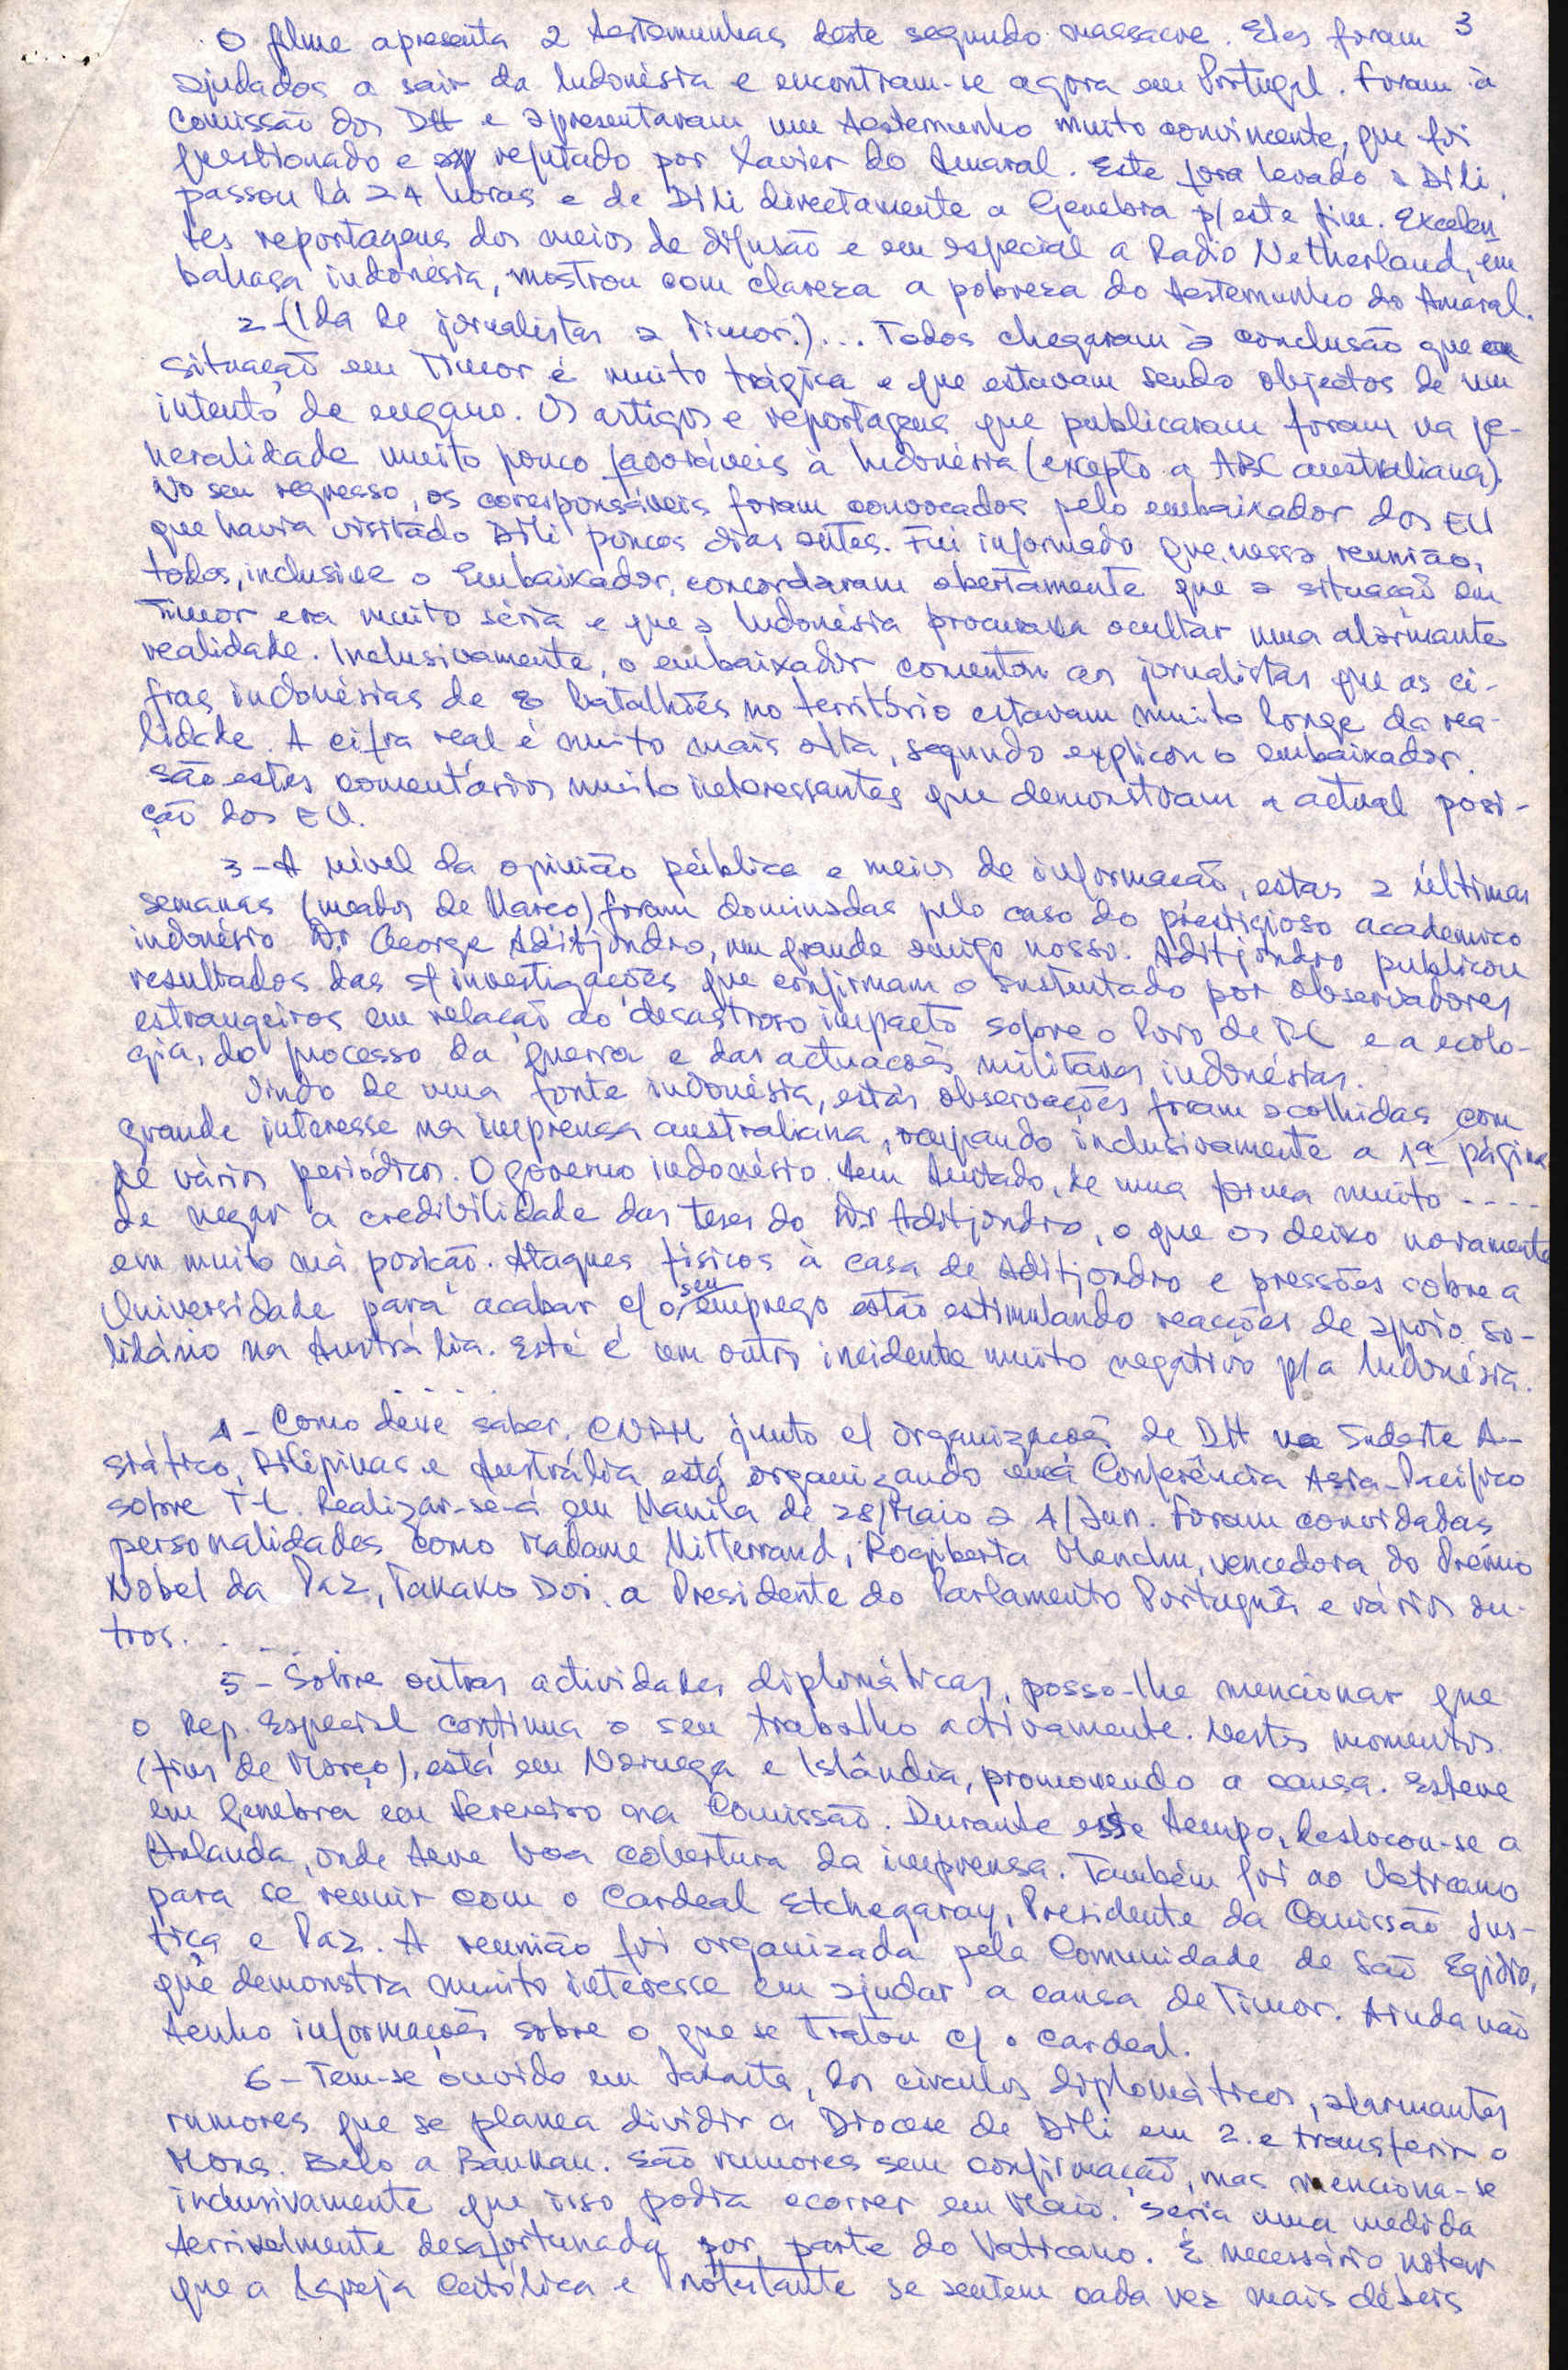 3
O filme apresenta 2 testemunhas deste segundo massacre. Eles foram
ajudados a sair da Indonésia e encontram-se agora em Portugal. Foram à
Comissão dos DH e apresentaram um testemunho muito convincente, que foi
questionado e refutado por Xavier do Amaral. Este fora levado a Dili,
passou lá 24 horas e de Dili directamente a Genebra p/ este fim. Excelen
tes reportagens dos meios de difusão e em especial a Radio Netherland, em
bahasa indonésia, mostrou com clareza a pobreza do testemunho do Amaral.
2-(Ida de jornalistas a Timor.)... Todos chegaram à conclusão que a
situação em Timor é muito trágica e que estavam sendo objectos de um
intento de engano. Os artigos e reportagens que publicaram foram na ge-
neralidade muito pouco favoráveis à Indonésia (excepto a ABC australiana).
No seu regresso, os corresponsáveis foram convocados pelo embaixador dos EU
que havia visitado Dili poucos dias antes. Fui informado que, nessa reunião,
todos, inclusive o Embaixador, concordaram abertamente que a situação em
Timor era muito séria e que a Indonésia procurava ocultar uma alarmante
realidade. Inclusivamente, o embaixador comentou aos jornalistas que as ci-
fras indonésias de 8 batalhões no território estavam muito longe da rea-
lidade. A cifra real é muito mais alta, segundo explicou o embaixador.
São estes comentários muito interessantes que demonstram a actual posi-
ção dos EU.
3-A nível da opinião pública e meios de informação, estas 2 últimas
semanas (meados de Março) foram dominadas pelo caso do prestigioso academico
indonésio Dr George Aditjondro, um grande amigo nosso. Aditjondro publicou
resultados das s/ investigações que confirmam o sustentado por observadores
estrangeiros em relação ao desastroso impacto sobre o Povo de TL e a ecolo-
gia, do processo da guerra e das actuações militares indonésias.
Vindo de uma fonte indonésia, estas observações foram acolhidas com
grande interesse na imprensa australiana, ocupando inclusivamente a 1ª página
de vários periódicos. O governo indonésio tem tentado, de uma forma muito ----
de negar a credibilidade das teses do Dr Aditjondro, o que os deixo novamente
em muito má posição. Ataques físicos à casa de Aditjondro e pressões sobre a
Universidade para acabar c/ o seu emprego estão estimulando reacções de apoio so-
lidário na Austrália. Este é um outro incidente muito negativo p/a Indonésia.
.....
4-Como deve saber, CNRM junto c/ organizações de DH no Sudeste A-
siático, Filipinas e Austrália está organizando uma Conferência Asia-Pacífico
sobre T-L. Realizar-se-á em Manila de 28/Maio a 4/Jun. Foram convidadas
personalidades como Madame Mitterrand, Rogiberta Menchu, vencedora do Prémio
Nóbel da Paz, Takako Doi, a Presidente do Parlamento Português e vários ou-
tros. . . . . .
5-Sobre outras actividades diplomáticas, posso-lhe mencionar que
o Rep. Especial continua o seu trabalho activamente. Nestes momentos
(fins de Março), está em Noruega e Islândia, promovendo a causa. Esteve
em Genebra em Fevereiro na Comissão. Durante esse tempo, deslocou-se a
Holanda, onde teve boa cobertura da imprensa. Também foi ao Vaticano
para se reunir com o Cardeal Etchegaray, Presidente da Comissão Jus-
tiça e Paz. A reunião foi organizada pela Comunidade de São Egidio,
que demonstra muito interesse em ajudar a causa de Timor. Ainda não
tenho informações sobre o que se tratou c/ o Cardeal.
6-Tem-se ouvido em Jakarta, dos circulos diplomáticos, alarmantes
rumores que se planea dividir a Diocese de Dili em 2 e transferir o
Mons. Belo a Baukau. São rumores sem confirmação, mas menciona-se
inclusivamente que isso podia ocorrer em Maio. Seria uma medida
terrivelmente desafortunada por parte do Vaticano. É necessário notar
que a Igreja Católica e Protestante se sentem cada vez mais débeis